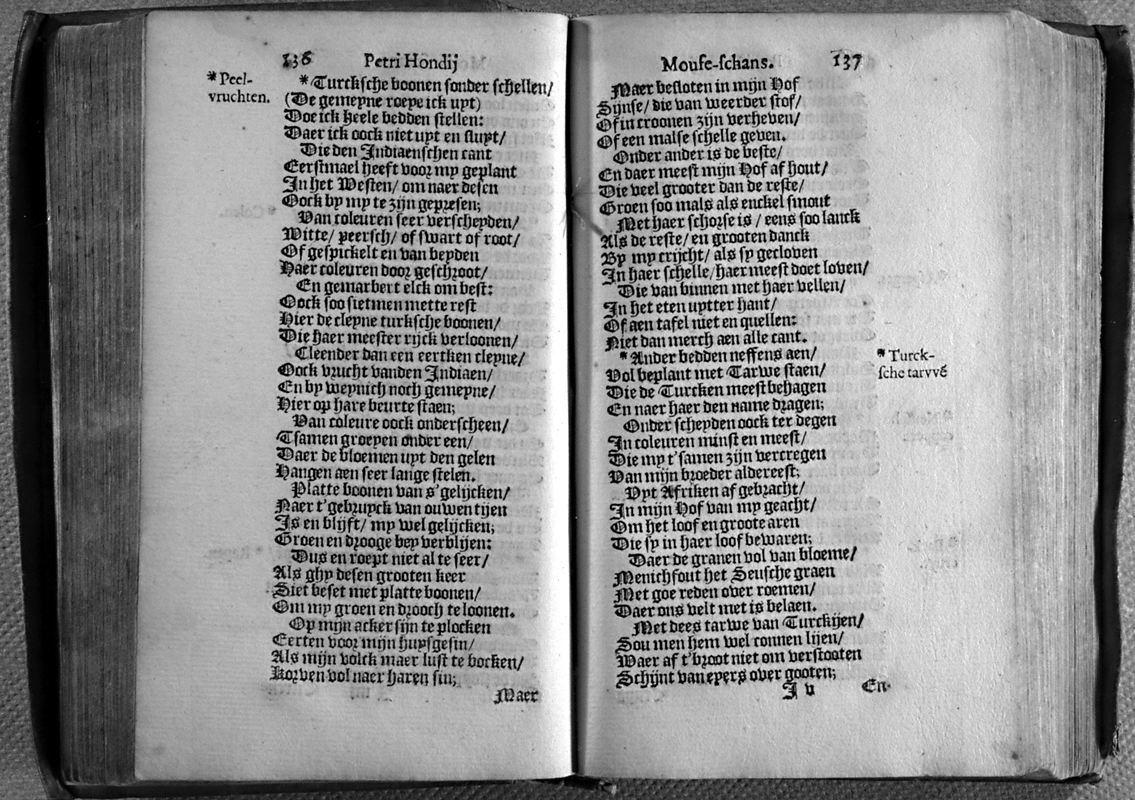 136 Petri Hondij
*Peel-
vruchten.
*Turcksche boonen sonder schellen/
(De gemeyne roepe ick uyt)
Doe ick heele bedden stellen:
Daer ick oock niet uyt en sluyt/
Die den Indiaenschen cant
Eerstmael heeft voor my geplant
In het Westen/ om naer desen
Oock by my te zijn gepresen;
Van coleuren seer verscheyden/
Witte/ peersch/ of swart of root/
Of gespickelt en van beyden
Haer coleuren door geschroot/
En gemarbert elck om best:
Oock soo sietmen mette rest
Hier de cleyne turksche boonen/
Die haer meester rijck verloonen/
Cleender dan een eertken cleyne/
Oock vrucht vanden Indiaen/
En by weynich noch gemeyne/
Hier op hare beurte staen;
Van coleure oock onderscheen/
Tsamen groeyen onder een/
Daer de bloemen uyt den gelen
Hangen aen seer lange stelen.
Platte boonen van s'gelijcken/
Naer t'gebruyck van ouwen tijen
Is en blijft/ my wel gelijcken;
Groen en drooge bey verblijen:
Dus en roept niet al te seer/
Als ghy desen grooten keer
Siet beset met platte boonen/
Om my groen en drooch te loonen.
Op mijn acker sijn te plocken
Eerten voor mijn huysgesin/
Als mijn volck maer lust te bocken/
Korven vol naer haren sin;
Maer
Mouse-schans. 137
Maer besloten in mijn Hof
Sijnse/ die van weerder stof/
Of in croonen zijn verheven/
Of een malse schelle geven.
Onder ander is de beste/
En daer meest mijn Hof af hout/
Die veel grooter dan de reste/
Groen soo mals als enckel smout
Met haer schorse is/ eens soo lanck
Als de reste/ en grooten danck
By my crijcht/ als sy gecloven
In haer schelle/ haer meest doet loven/
Die van binnen met haer vellen/
In het eten uytter hant/
Of aen tafel niet en quellen:
Niet dan merch aen alle cant.
*Ander bedden neffens aen/
*Turck-
sche tarvvé
Vol beplant met Tarwe staen/
Die de Turcken meest behagen
En naer haer den name dragen;
Onder scheyden oock ter degen
In coleuren minst en meest/
Die my t'samen zijn vercregen
Van mijn broeder aldereest;
Uyt Afriken af gebracht/
In mijn Hof van my geacht/
Om het loof en groote aren
Die sy in haer loof bewaren;
Daer de granen vol van bloeme/
Menichfout het Seusche graen
Met goe reden over roemen/
Daer ons velt met is belaen.
Met dees tarwe van Turckijen/
Sou men hem wel connen lijen/
Waer af t'broot niet om verstooten
Schijnt van eyers over gooten;
I v En